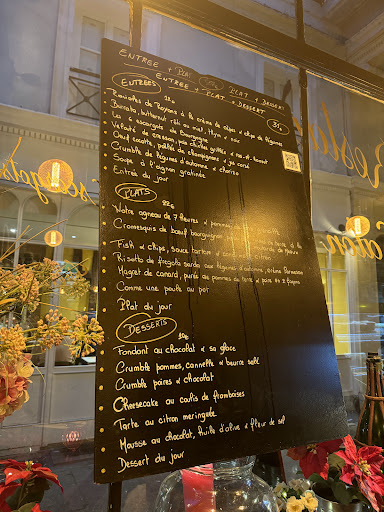 ENTREE + PLAT PLAT + DESSERT
ENTREE + PLAT + DESSERT
ENTREES
Ravioles de Royans à la crème de cèpes & cèpe de légumes
Burrata, butternut rôti au miel, thym & noix
Les 6 escargots de Bourgogne
Velouté de cresson, pois chiches grillés
Oeuf cocotte, poêlée de champignons & jus corsé
Crumble de légumes d'automne & chorizo
Soupe à l'oignon gratinée
Entrée du jour
PLATS
22€
Notre agneau de 7 heures & pommes
Cromesquis de bœuf bourguignon
Fish & chips, sauce tartare
Risotto de fregola sarda aux légumes d'automne, crème Parmesan
Magret de canard, purée de pommes de terre &
Comme une poule au pot
Plat du jour
DESSERTS
10€
Fondant au chocolat & sa glace
Crumble pommes, cannelle & beurre salé
Crumble poires & chocolat
Cheesecake au coulis de framboises
Tarte au citron meringuée
Mousse au chocolat, huile d'olive & fleur de sel
Dessert du jour